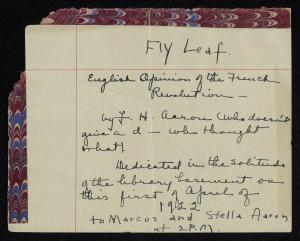 Fly Leaf.
English Opinion of the French
Revolution —
by F. H. Aaron (who doesn't
give a d— who thought
what!
Dedicated in the solitude
of the library basement on
this first of April of
1922
to Marcus and Stella Aaron
at 2 P.M.